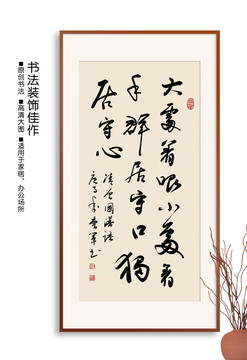 书法装饰佳作
■原创书法 ■高清大图 ■适用于家居、办公场所
大处着眼小处着
手群居守口独
居守心